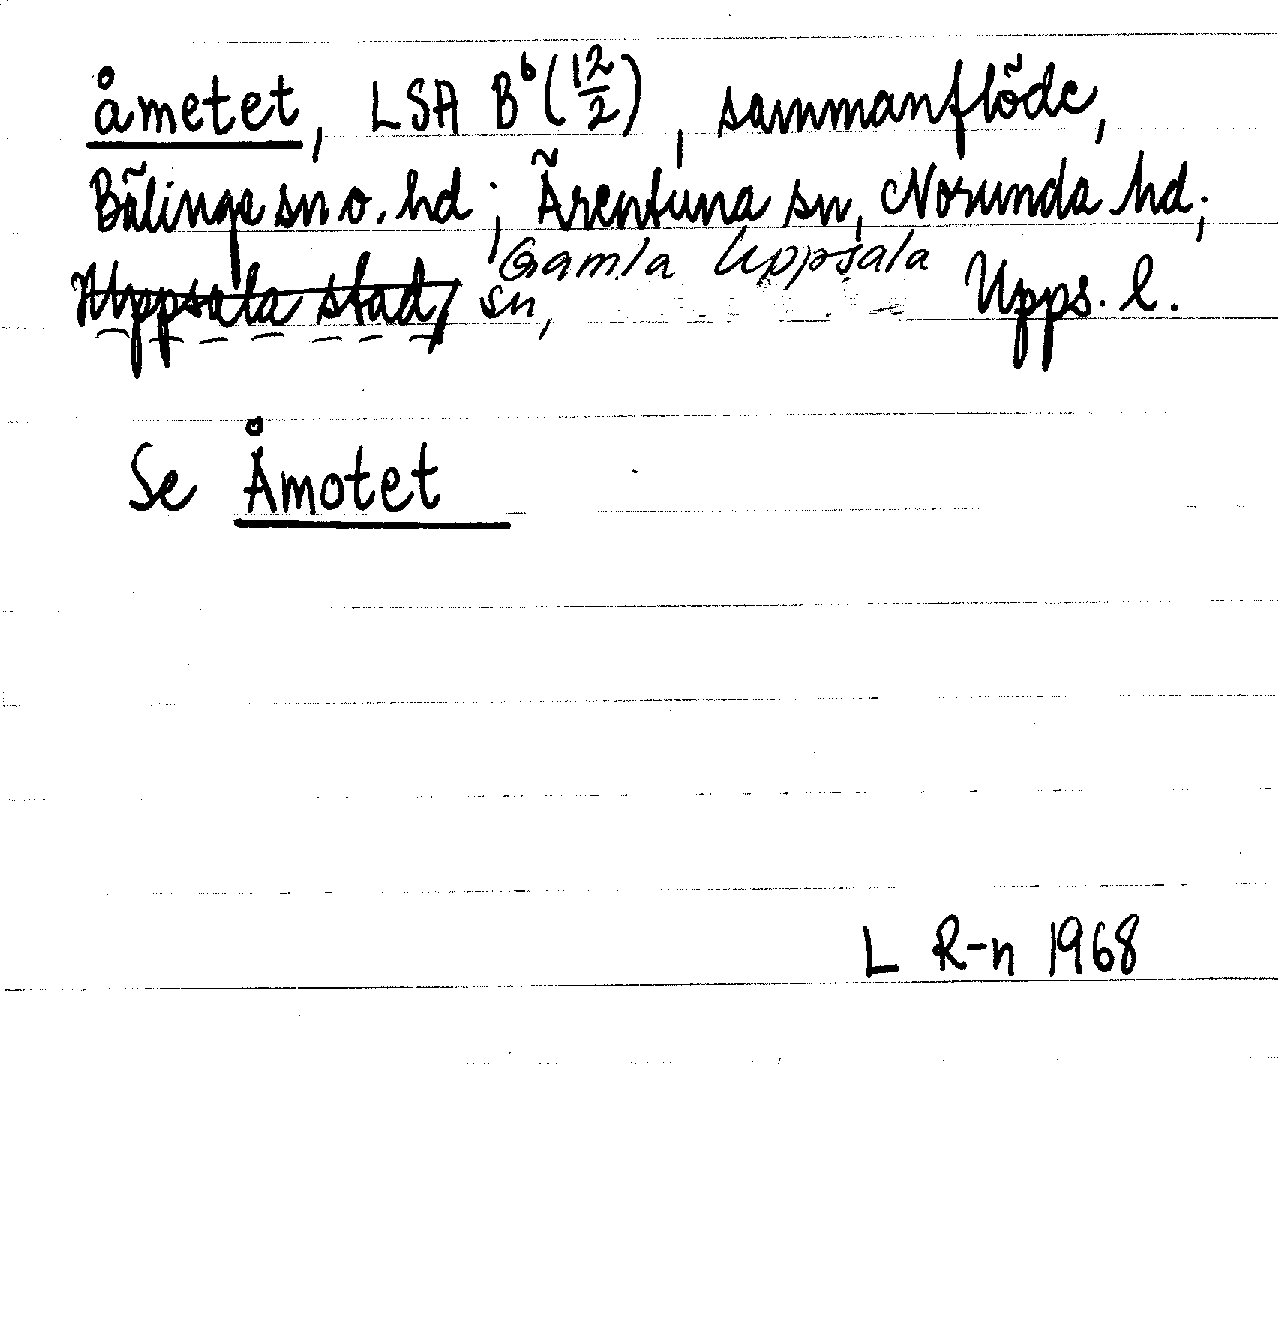 åmetet, LSA B⁶(12/2), sammanflöde,
Bälinge sn o. hd; Ärentuna sn, Norunda hd;
Uppsala stad, Gamla Uppsala sn, Upps. l.
Se Åmotet
L R-n 1968